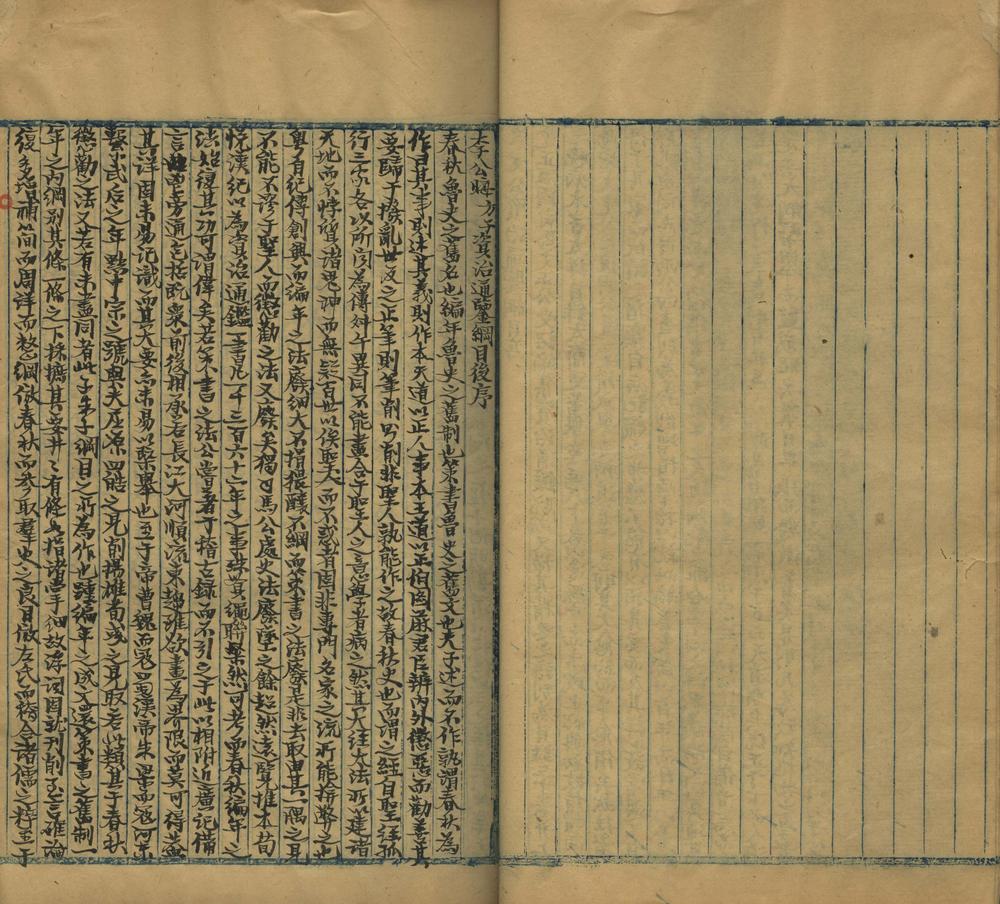 李公晦方子資治通鑒綱目後序
春秋魯史之舊名也編年魯史之舊制也策書魯史之舊文也夫子述而不作孰謂春秋為
作曰其事則述其義則作本天道以正人事本王道以正伯圖嚴君臣辨內外懲惡而勸善其
要歸于撥亂世反之正筆則筆削則削非聖人孰能作之故春秋史也而謂之經自聖經孤
行三家各以所聞為傳舛午異同不能盡合于聖人之意學者病之然其大經大法所以建諸
天地而不悖質諸鬼神而無疑百世以俟聖人而不惑者固非專門名家之流所能揜蔽之也
粵自紀傳創興而編年之法廢細大不捐猥釀不綱而策書之法廢是非去取由其一隅之見
不能不謬于聖人而懲勸之法又廢矣獨司馬公處史法廢墜之餘超然遠覽推本荀
悅漢紀以為資治通鑑一書凡一千三百六十二年之事珠貫繩聯粲然可考而春秋編年之
法始復其功可謂偉矣若策書之法公嘗著于稽古錄而不引之于此以相附近廣記備
言曲暢旁通包括既衆前後相承若長江大河順流東趨雖欲畫為界限而莫可得盖
其詳固未易記識而其大要亦未易以槩舉也至于帝曹魏而冦蜀漢帝朱梁而冦河東
繫武后之年黜中宗之號與夫屈原四皓之見削揚雄荀彧之見取若此類其于春秋
懲勸之法又若有未盡同者此子朱子綱目之所為作也踵編年之成文還策書之舊制一
年之內綱別其條一條之下採摭其要井井有條如指諸掌細故浮詞因就刊削至言確論
復多增補簡而周詳而整綱倣春秋而參取羣史之良目倣左氏而稽合諸儒之粹至于